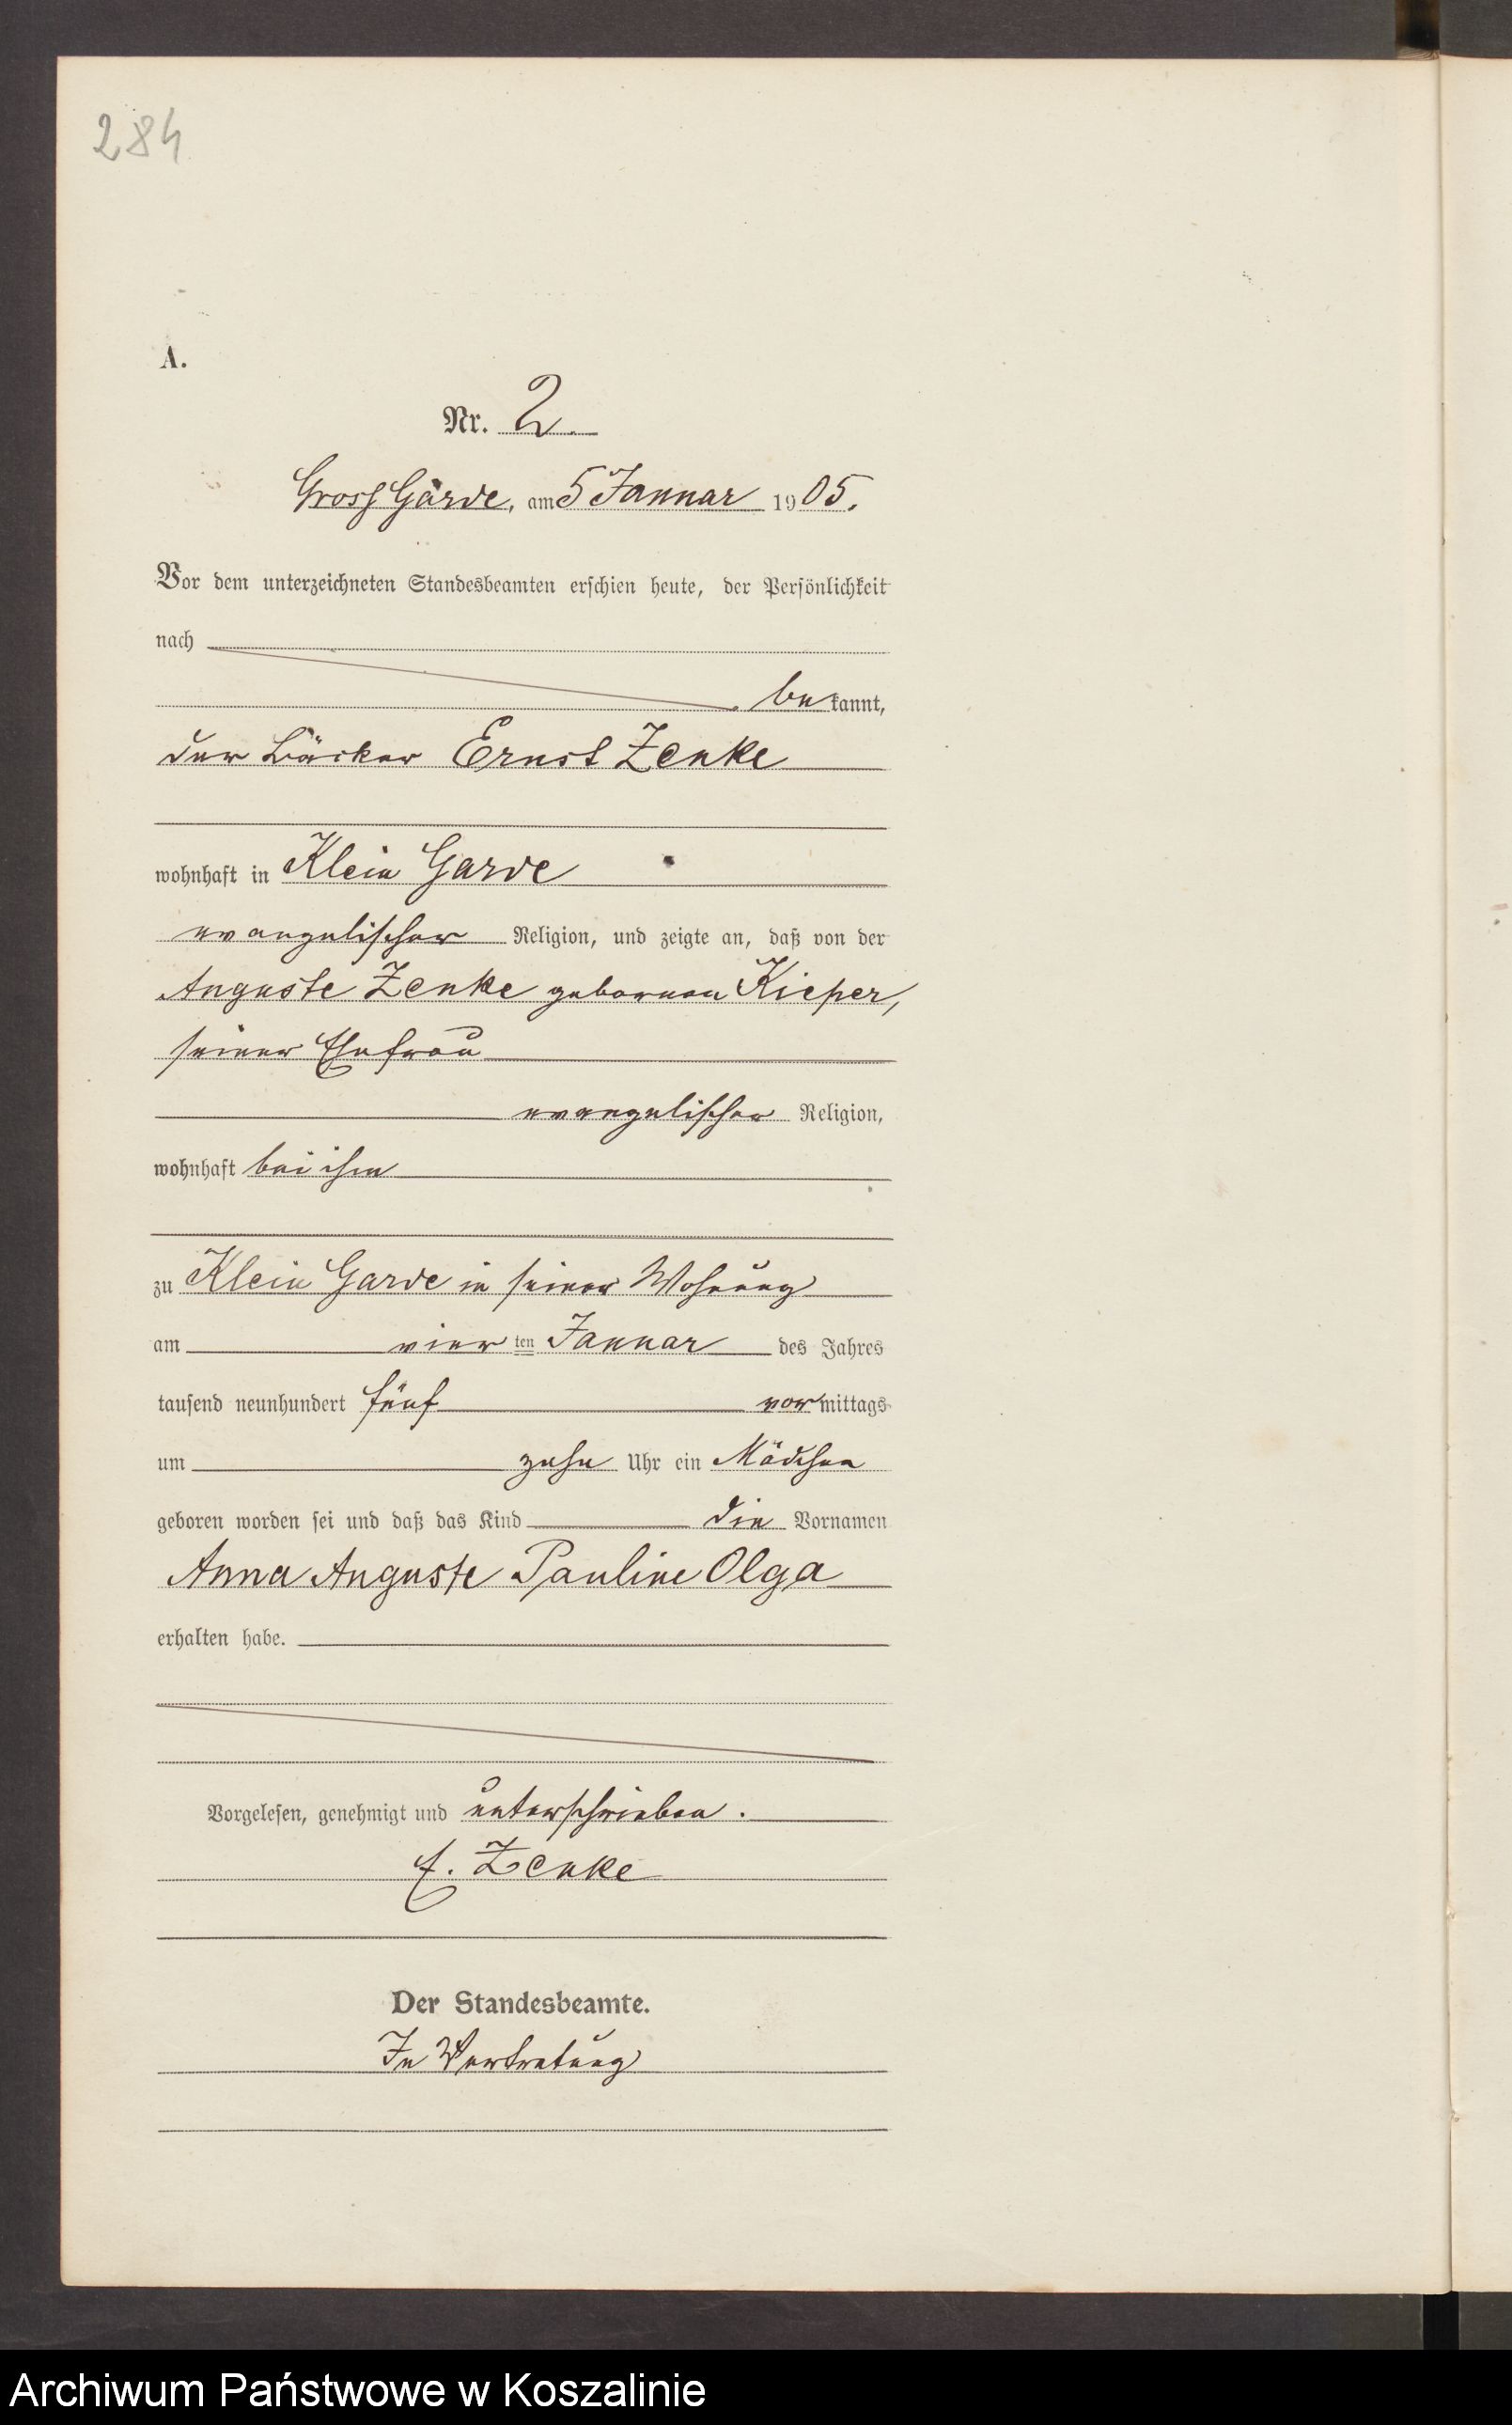 284
A.
Nr. 2.
Gross Garde, am 5 Januar 1905.
Vor dem unterzeichneten Standesbeamten erschien heute, der Persönlichkeit
nach
bekannt,
der Bäcker Ernst Zenke
wohnhaft in Klein Garde
evangelischer Religion, und zeigte an, daß von der
Auguste Zenke geborenen Kieper,
seiner Ehefrau
evangelischer Religion,
wohnhaft bei ihm
zu Klein Garde in seiner Wohnung
am vier ten Januar des Jahres
tausend neunhundert fünf vormittags
um zehn Uhr ein Mädchen
geboren worden sei und daß das Kind die Vornamen
Anna Auguste Pauline Olga
erhalten habe.
Vorgelesen, genehmigt und unterschrieben.
E. Zenke
Der Standesbeamte.
In Vertretung
Archiwum Państwowe w Koszalinie